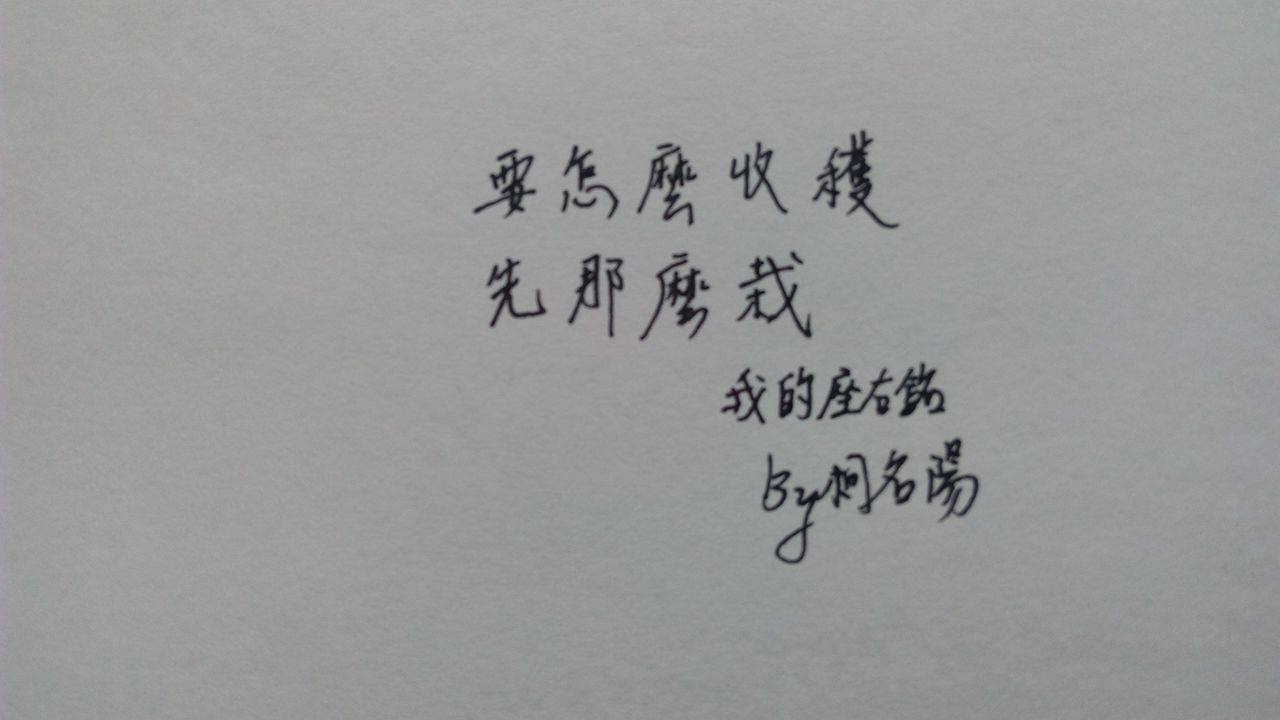 要怎麼收穫
先那麼栽
我的座右銘
By 柯名陽